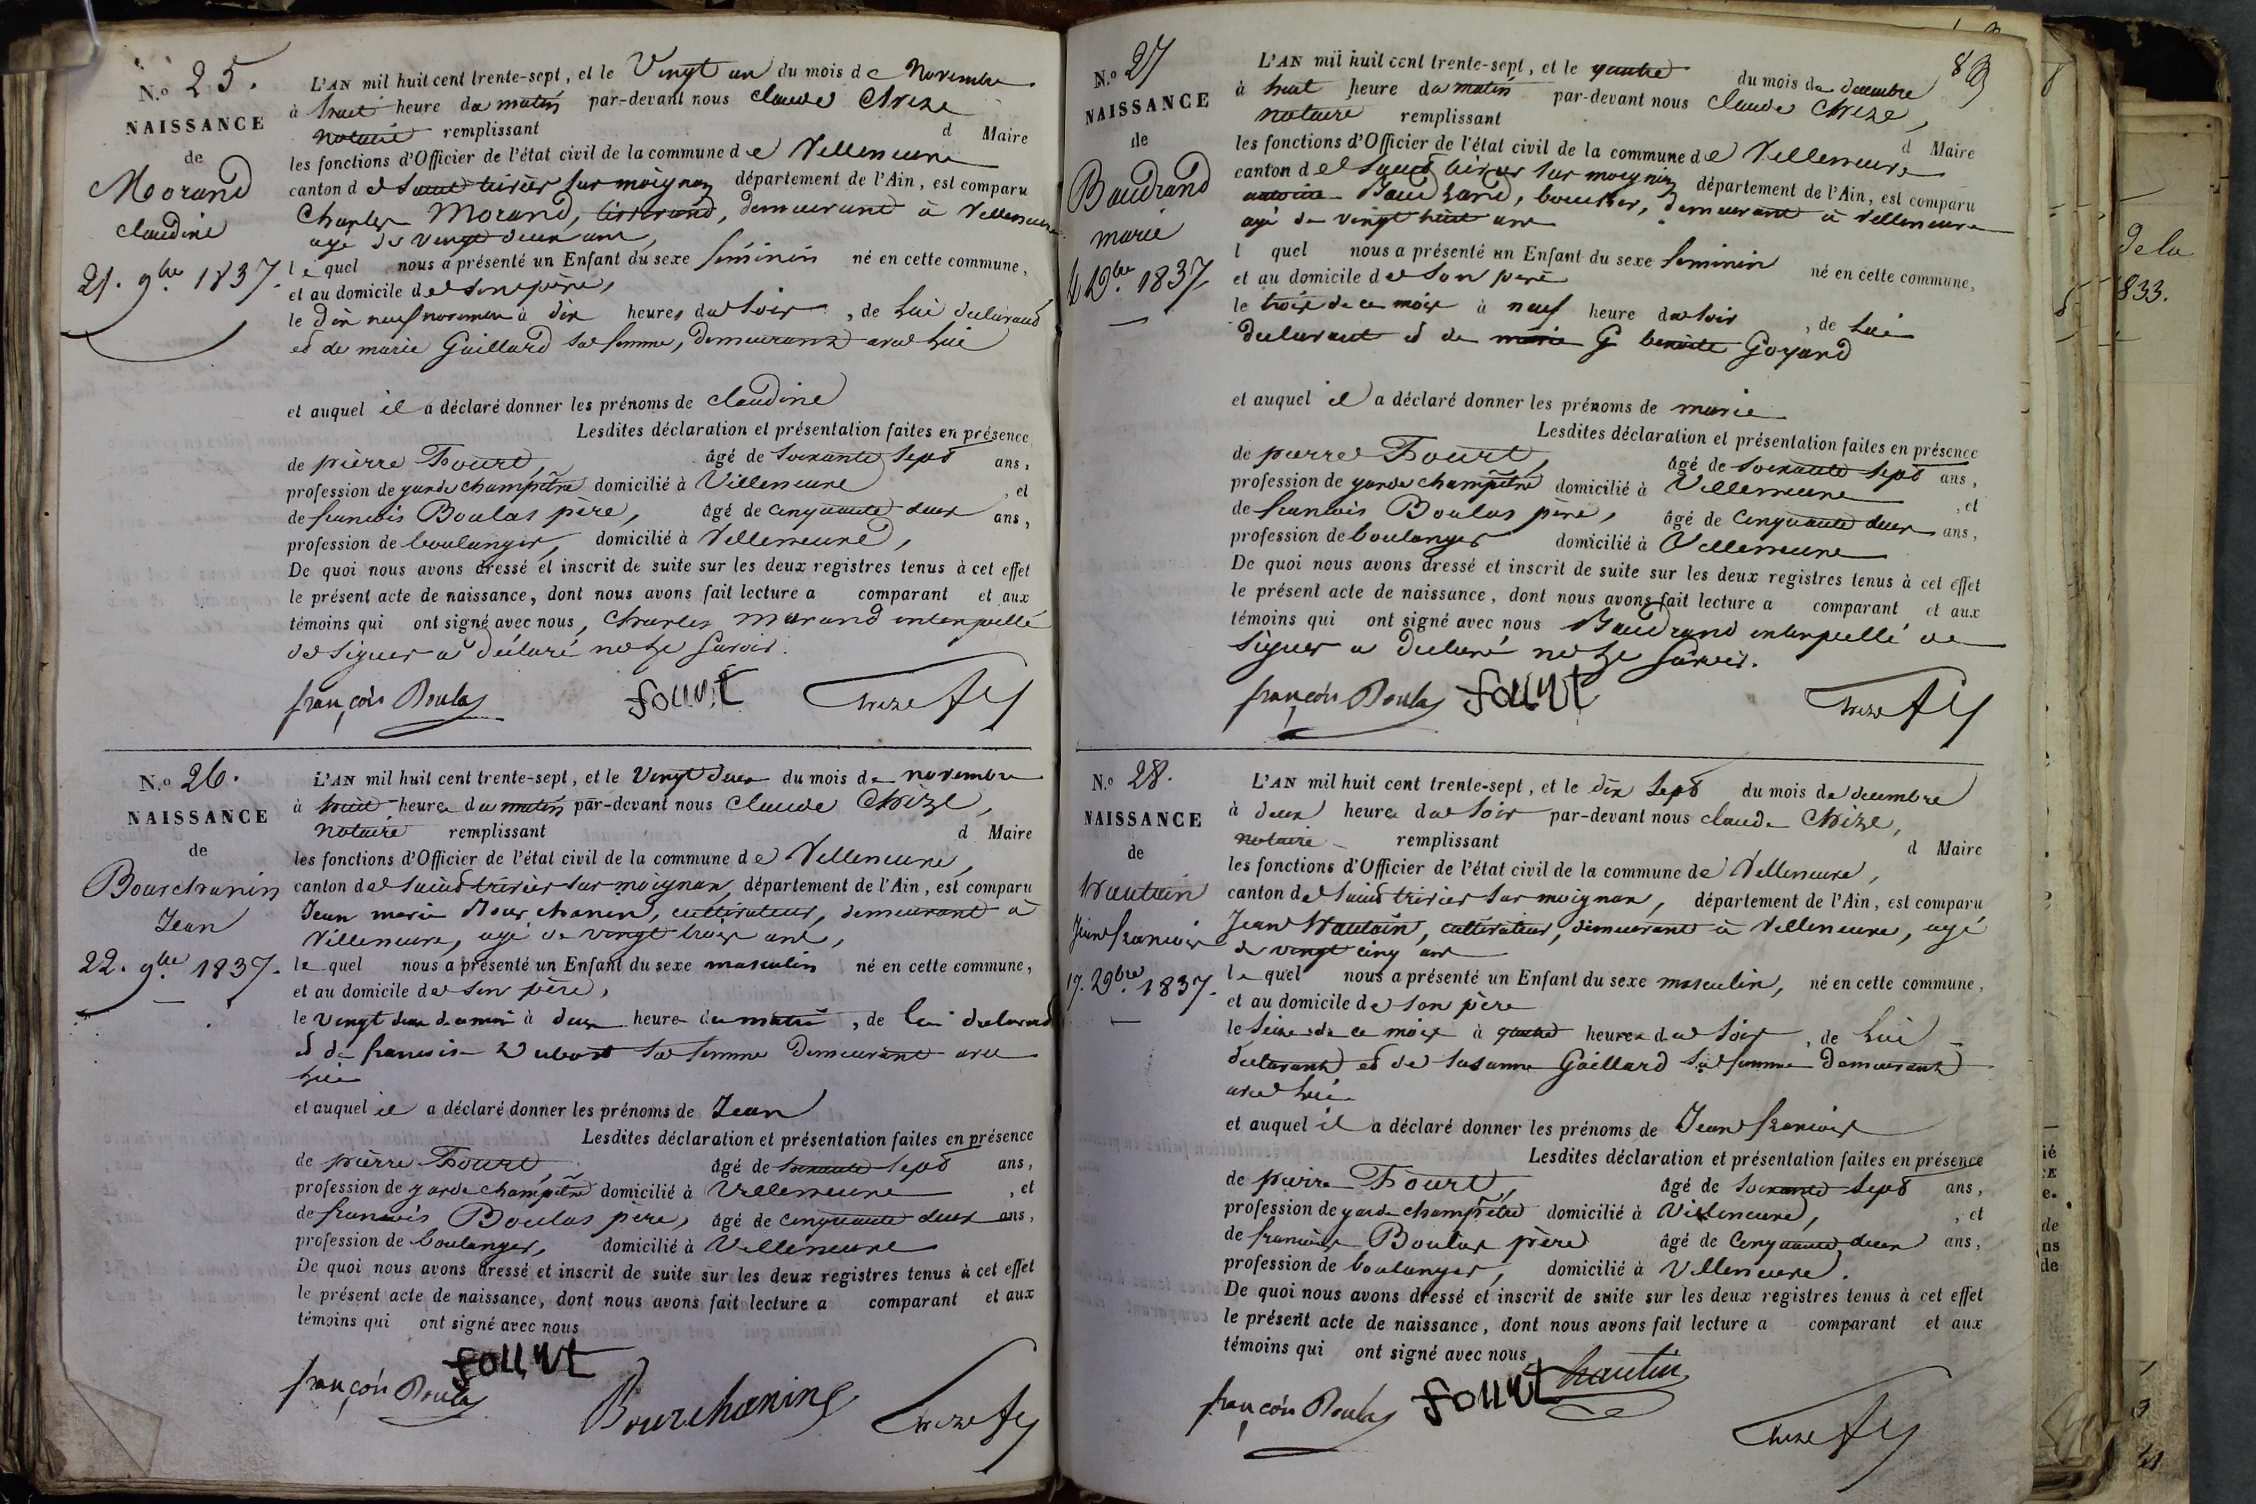 N.o 25.
NAISSANCE
de
Morand
claudine
21. 9bre 1837.
L'AN mil huit cent trente-sept, et le Vingt un du mois de Novembre
à huit heure du matin par-devant nous claude Chize
notaire remplissant d Maire
les fonctions d'Officier de l'état civil de la commune de Villeneuve
canton de Saint trivier sur moignan département de l'Ain, est comparu
Charles Morand, tisserand, demeurant à Villeneuve
agé de vingt deux ans,
le quel nous a présenté un Enfant du sexe féminin né en cette commune,
et au domicile de son père,
le dix neuf novembre à dix heures du soir, de lui déclarant
et de marie Gaillard sa femme, demeurant avec lui
et auquel il a déclaré donner les prénoms de claudine
Lesdites déclaration et présentation faites en présence
de pierre Fourt, âgé de soixante sept ans,
profession de garde champêtre domicilié à Villeneuve, et
de françois Boulas père, âgé de cinquante deux ans,
profession de boulanger, domicilié à Villeneuve,
De quoi nous avons dressé et inscrit de suite sur les deux registres tenus à cet effet
le présent acte de naissance, dont nous avons fait lecture a comparant et aux
témoins qui ont signé avec nous, Charles Morand interpellé
de signer a déclaré ne le savoir.
françois Boulas fourt Chize
N.o 26.
NAISSANCE
de
Bourchanin
Jean
22. 9bre 1837.
L'AN mil huit cent trente-sept, et le Vingt deux du mois de novembre
à huit heure du matin par-devant nous claude Chize,
notaire remplissant d Maire
les fonctions d'Officier de l'état civil de la commune de Villeneuve,
canton de saint trivier sur moignan, département de l'Ain, est comparu
Jean marie Bourchanin, cultivateur, demeurant à
Villeneuve, agé de vingt trois ans,
le quel nous a présenté un Enfant du sexe masculin né en cette commune,
et au domicile de son père,
le vingt deux du mois à deux heure du matin, de lui déclarant
et de francoise Dubost sa femme demeurant avec
lui
et auquel il a déclaré donner les prénoms de Jean
Lesdites déclaration et présentation faites en présence
de pierre Fourt, âgé de soixante sept ans,
profession de garde champêtre domicilié à Villeneuve, et
de francois Boulas père, âgé de cinquante deux ans,
profession de boulanger, domicilié à Villeneuve
De quoi nous avons dressé et inscrit de suite sur les deux registres tenus à cet effet
le présent acte de naissance, dont nous avons fait lecture a comparant et aux
témoins qui ont signé avec nous
françois Boulas fourt Bourchanin Chize
83
N.o 27
NAISSANCE
de
Baudrand
marie
4 12bre 1837
L'AN mil huit cent trente-sept, et le quatre du mois de decembre
à huit heure du matin par-devant nous claude Chize,
notaire remplissant d Maire
les fonctions d'Officier de l'état civil de la commune de Villeneuve
canton de saint trivier sur moignan département de l'Ain, est comparu
antoine Baudrand, boucher, demeurant à Villeneuve
agé de vingt huit ans
l quel nous a présenté un Enfant du sexe feminin né en cette commune,
et au domicile de son père
le trois de ce mois à neuf heure du soir, de lui
declarant et de marie G benoite Goyard
et auquel il a déclaré donner les prénoms de marie
Lesdites déclaration et présentation faites en présence
de pierre Fourt, âgé de soixante sept ans,
profession de garde champêtre domicilié à Villeneuve, et
de francois Boulas père, âgé de cinquante deux ans,
profession de boulanger domicilié à Villeneuve
De quoi nous avons dressé et inscrit de suite sur les deux registres tenus à cet effet
le présent acte de naissance, dont nous avons fait lecture a comparant et aux
témoins qui ont signé avec nous Baudrand interpellé de
signer a déclaré ne le savoir.
françois Boulas fourt Chize
N.o 28.
NAISSANCE
de
hautain
Jean francois
17. 12bre 1837.
L'AN mil huit cent trente-sept, et le dix sept du mois de decembre
à deux heure du soir par-devant nous claude Chize,
notaire remplissant d Maire
les fonctions d'Officier de l'état civil de la commune de Villeneuve,
canton de saint trivier sur moignan, département de l'Ain, est comparu
Jean hautain, cultivateur, demeurant à Villeneuve, agé
de vingt cinq ans
le quel nous a présenté un Enfant du sexe masculin, né en cette commune,
et au domicile de son père
le seize de ce mois à quatre heures du soir, de lui
declarant et de susanne Gaillard sa femme demeurant
avec lui
et auquel il a déclaré donner les prénoms de Jean francois
Lesdites déclaration et présentation faites en présence
de pierre Fourt, âgé de soixante sept ans,
profession de garde champêtre domicilié à Villeneuve, et
de francois Boulas père âgé de cinquante deux ans,
profession de boulanger, domicilié à Villeneuve.
De quoi nous avons dressé et inscrit de suite sur les deux registres tenus à cet effet
le présent acte de naissance, dont nous avons fait lecture a comparant et aux
témoins qui ont signé avec nous
françois Boulas fourt hautin Chize
de la
833.